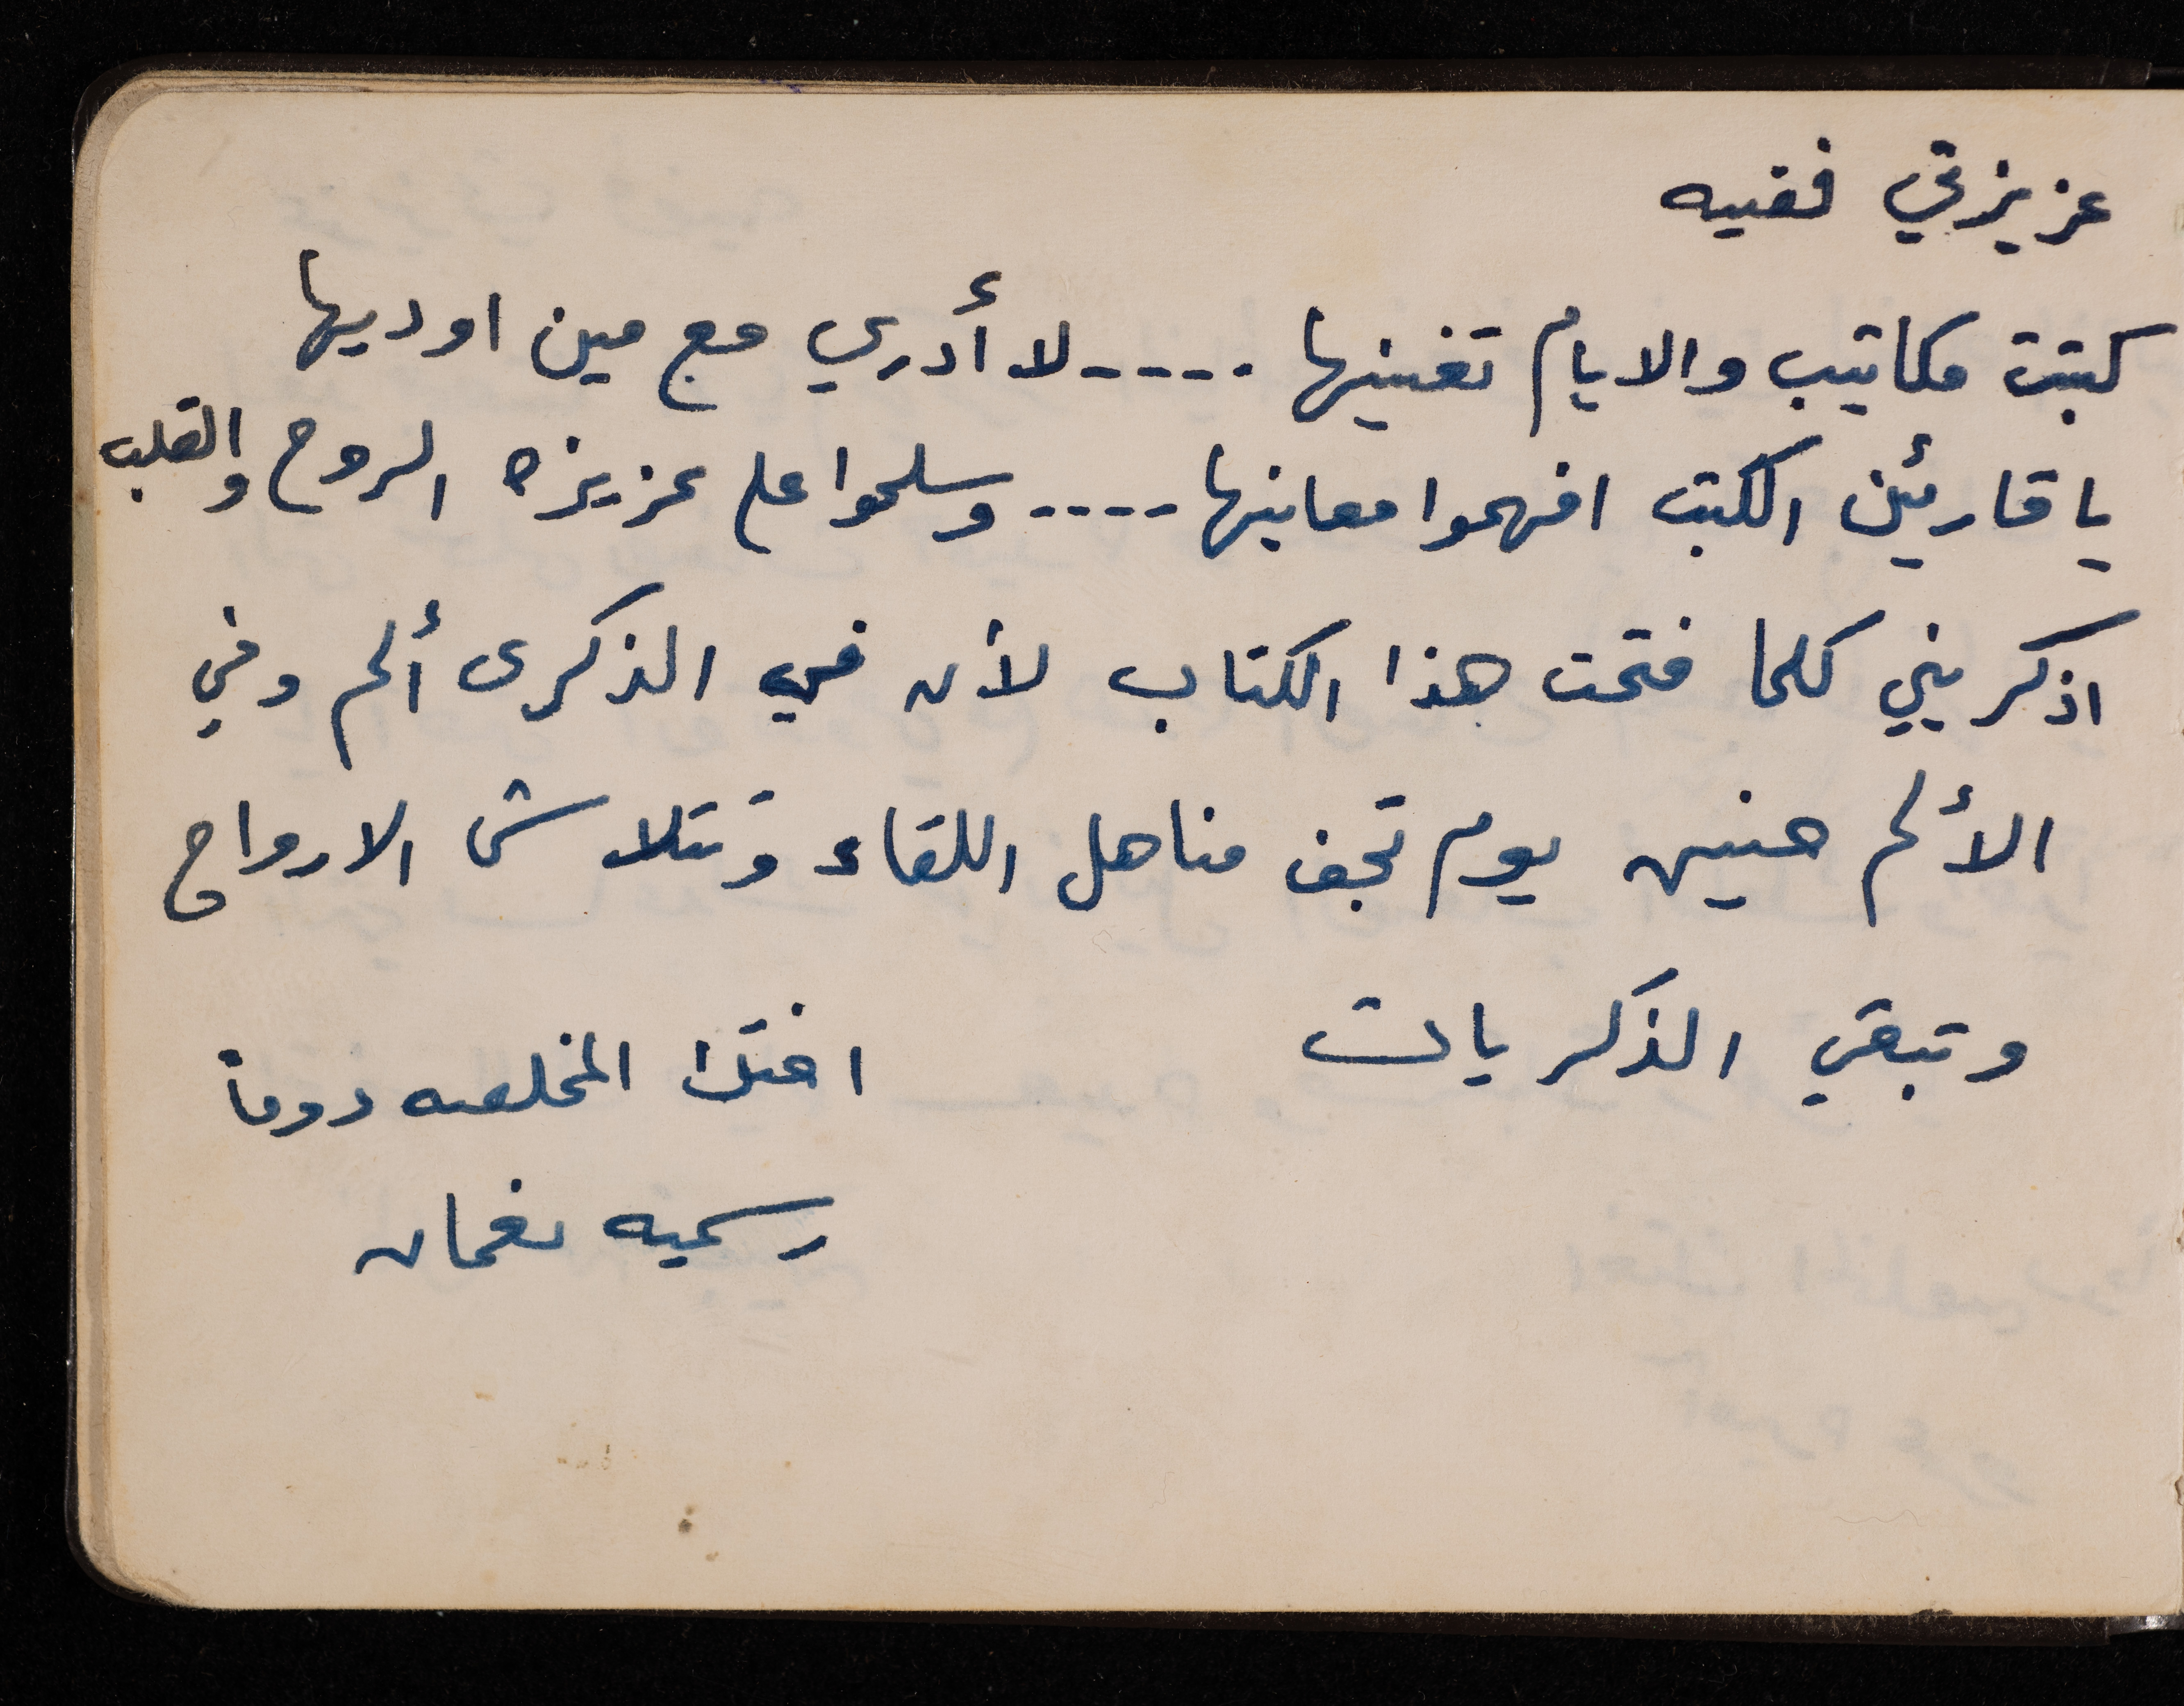 عزيزتي فقيه
كتبت مكاتيب والايام تفنيها ..... لا أدري مع مين اوديها
يا قارئين الكتب افهموا معانيها .... وسلموا على عزيزه الروح والقلب
اذكريني كلما فتحت هذا الكتاب لأن في الذكرى ألم وفي
الألم حنين يوم تجف مناهل اللقاء وتتلاش الارواح
وتبقي الذكريات
اختك المخلصه دوماً
رسميه نعمان